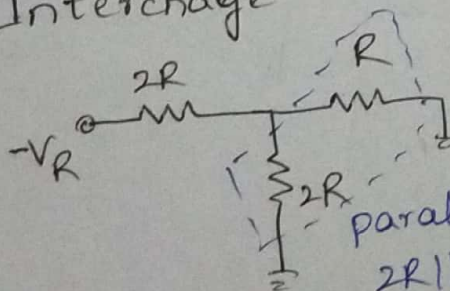 Interchage
2R
R
-VR
2R
paral
2R|